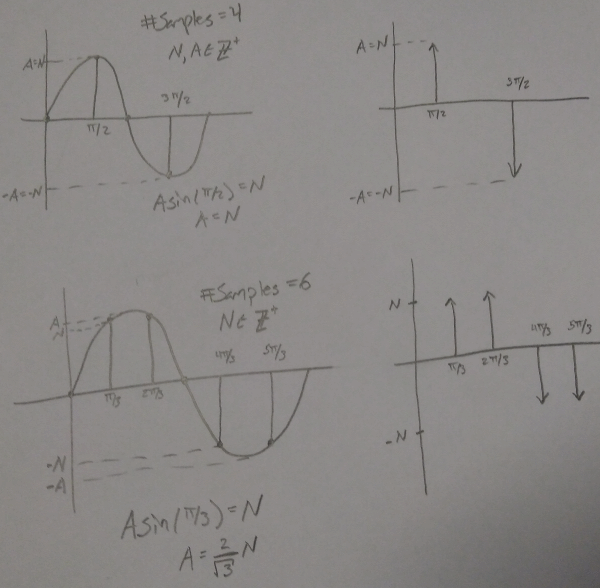 #Samples=4
N, A ∈ ℤ⁺
A=N
3π/2
π/2
-A=-N
Asin(π/2)=N
A=N
A=N
3π/2
π/2
-A=-N
#Samples=6
N ∈ ℤ⁺
A
N
4π/3
5π/3
π/3
2π/3
-N
-A
Asin(π/3)=N
A=2/√3 N
N
4π/3
5π/3
π/3
2π/3
-N